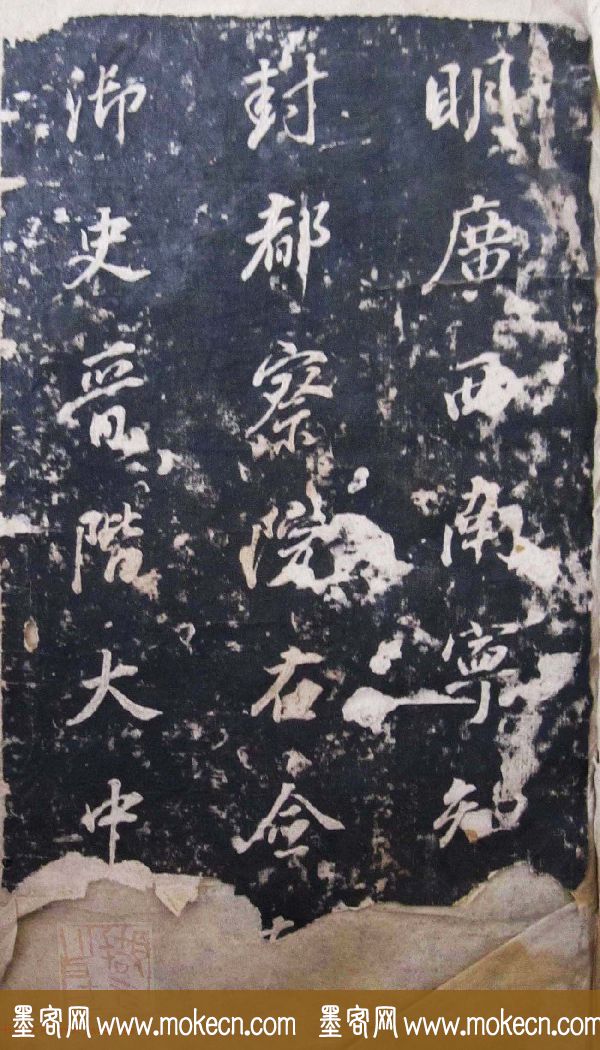 明廣西南寧知
封都察院右僉
御史晉階大中
墨客网 www.mokecn.com 墨客网 www.mokecn.com